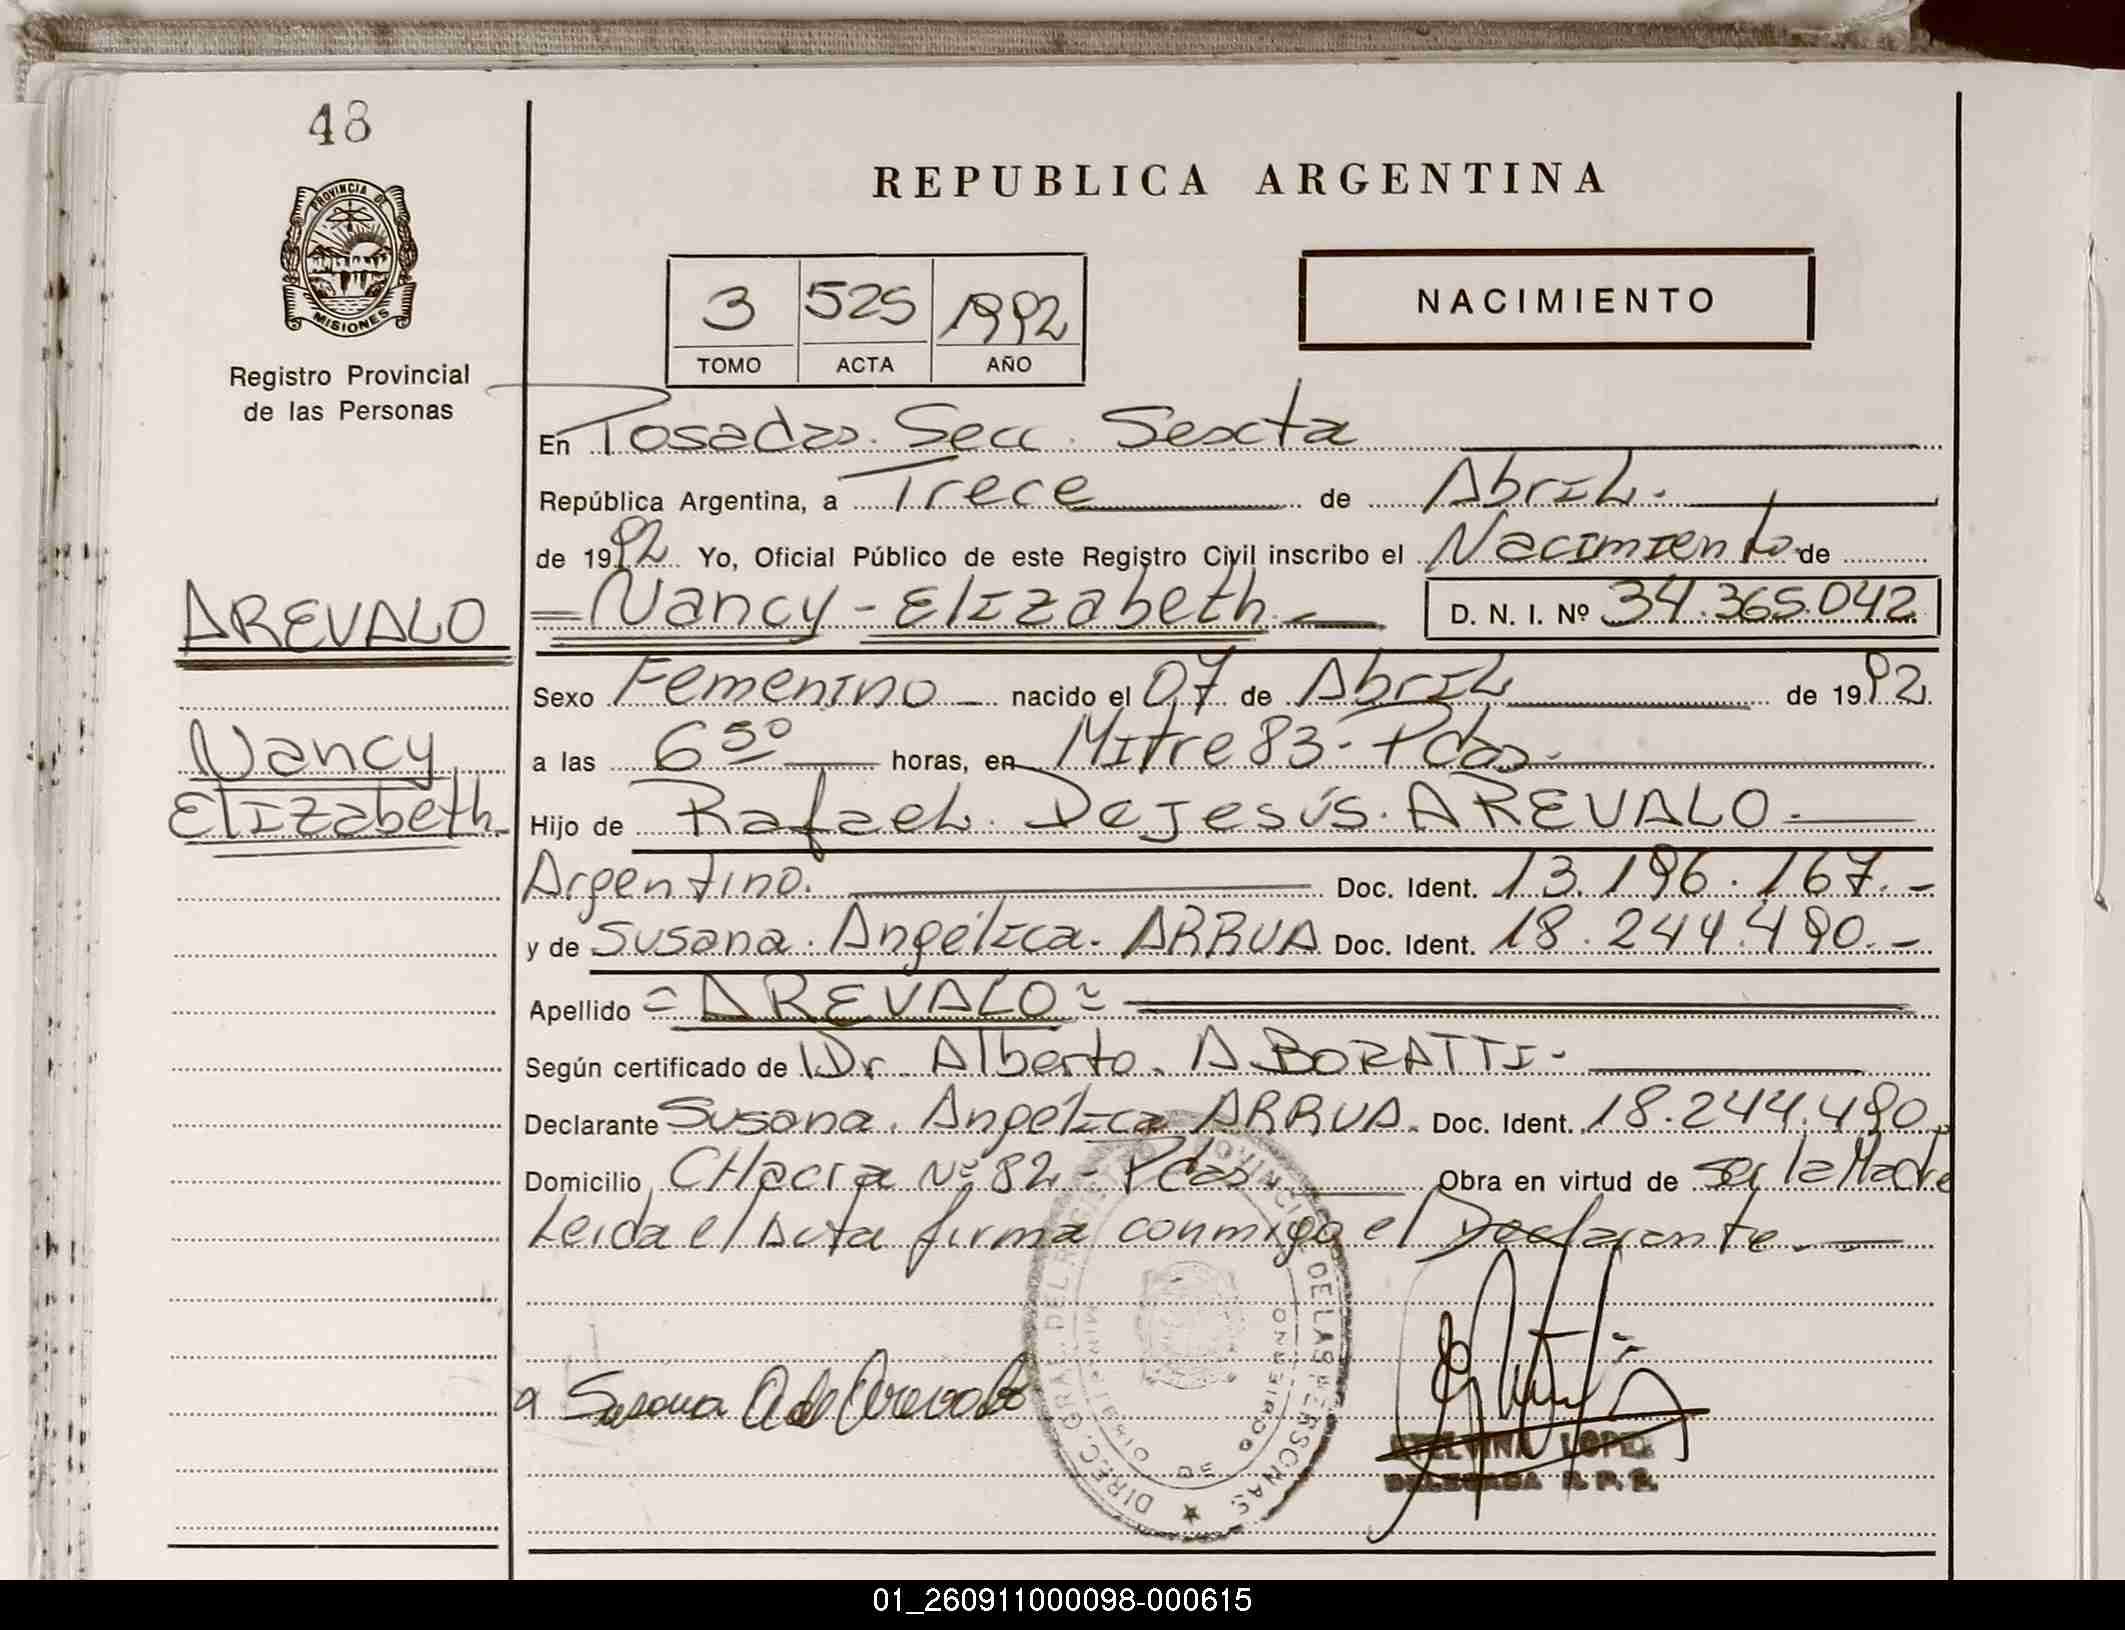 48
PROVINCIA DE
MISIONES
Registro Provincial
de las Personas
REPUBLICA ARGENTINA
3 525 1992
TOMO ACTA AÑO
NACIMIENTO
En Posadas. Secc. Sexta
República Argentina, a Trece de Abril.
de 1992 Yo, Oficial Público de este Registro Civil inscribo el Nacimiento de
AREVALO
= Nancy - Elizabeth.- D. N. I. Nº 34.365.042
Sexo Femenino nacido el 07 de Abril de 1992.
Nancy
Elizabeth.
a las 6 50 horas, en Mitre 83 - Pdas.
Hijo de Rafael. De Jesús. AREVALO.
Argentino. Doc. Ident. 13.196.167.-
y de Susana. Angélica. ARRUA Doc. Ident. 18.244.490.-
Apellido = AREVALO =
Según certificado de Dr. Alberto. A. BORATTI.
Declarante Susana. Angélica ARRUA. Doc. Ident. 18.244.490.
Domicilio CHacra Nº 82 - Pdas Obra en virtud de ser la Madre
Leida el Acta firma conmigo el Declarante.
DIREC. GRAL. DEL REGISTRO PROVINCIAL DE LAS PERSONAS
MINISTERIO DE GOBIERNO
Susana A de Arevalo
ETELVINA LOPEZ
DELEGADA R. P. P.
01_260911000098-000615